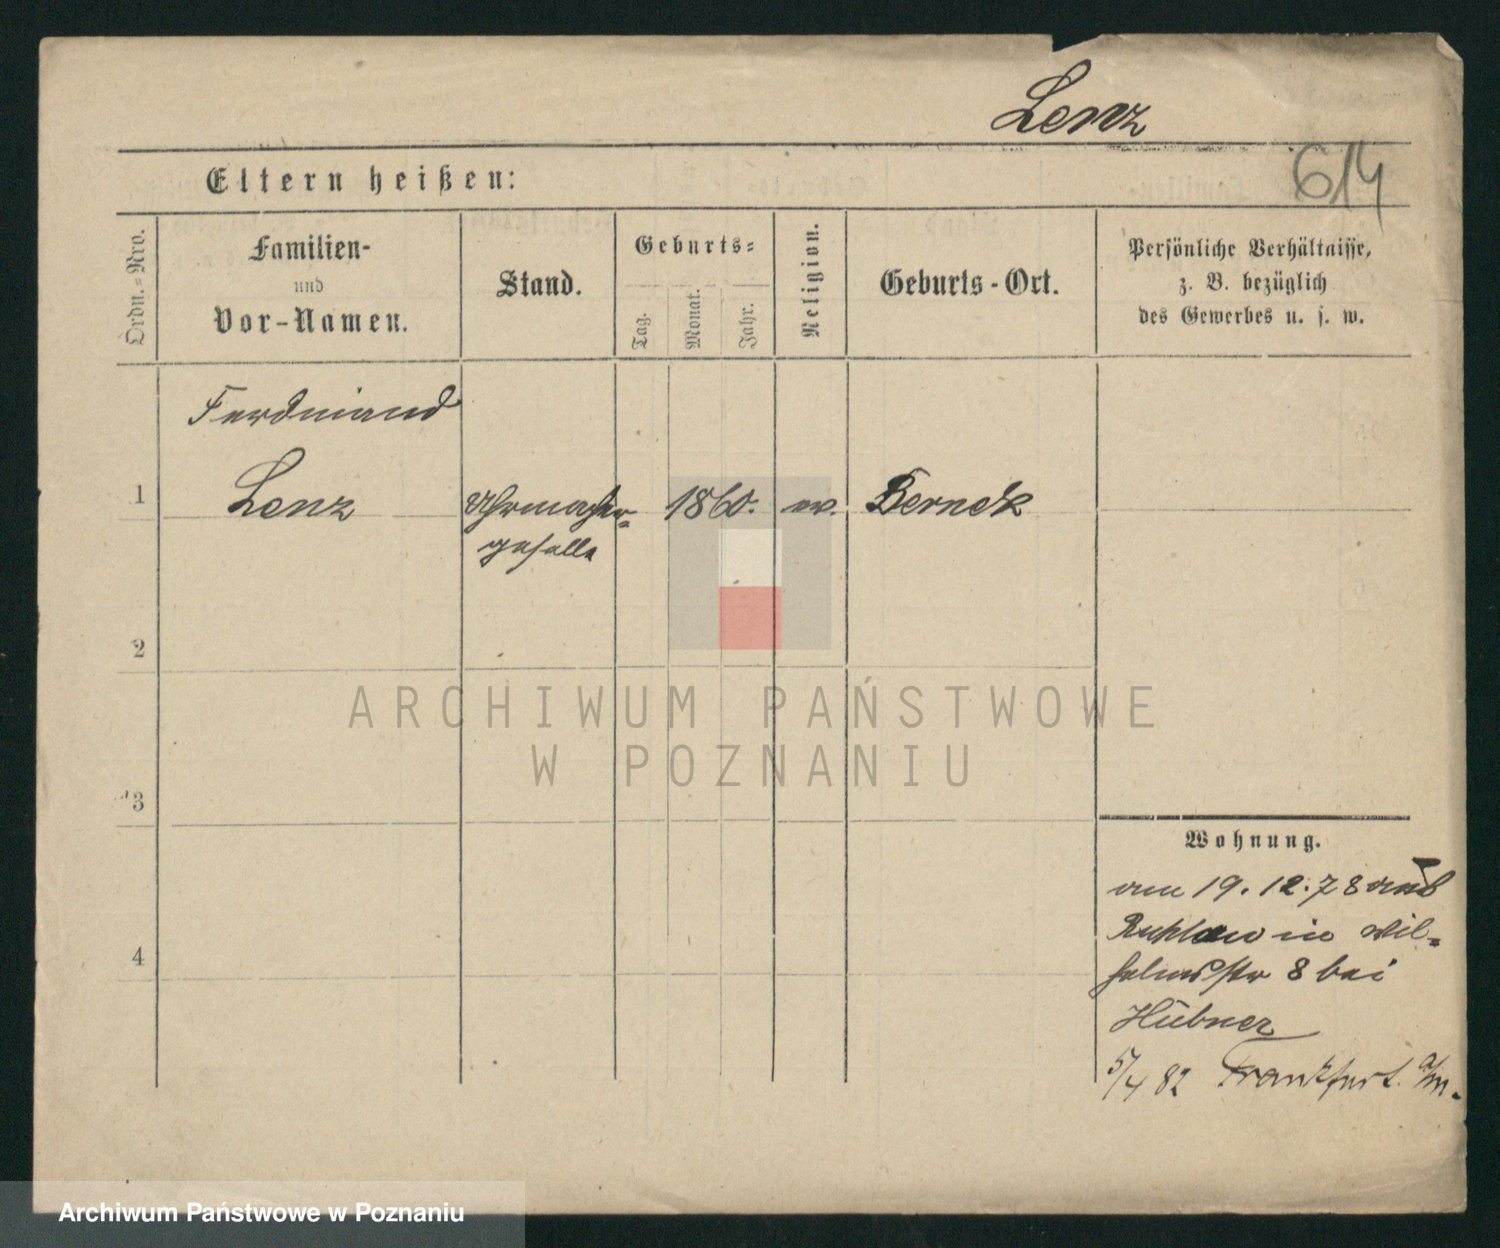 Lenz
614
Eltern heißen:
Ordn.=Nro.
Familien-
und
Vor-Namen.
Stand.
Geburts=
Tag.
Monat.
Jahr.
Religion.
Geburts-Ort.
Persönliche Verhältnisse,
z. B. bezüglich
des Gewerbes u. s. w.
Ferdinand
1 Lenz Uhrmacher- 1860. ev. Berneck
geselle
2
3
4
ARCHIWUM PAŃSTWOWE
W POZNANIU
Wohnung.
am 19.12.78 aus
in Wil-
helmsstr 8 bei
Hübner
5/4 82 Frankfurt a/M.
Archiwum Państwowe w Poznaniu